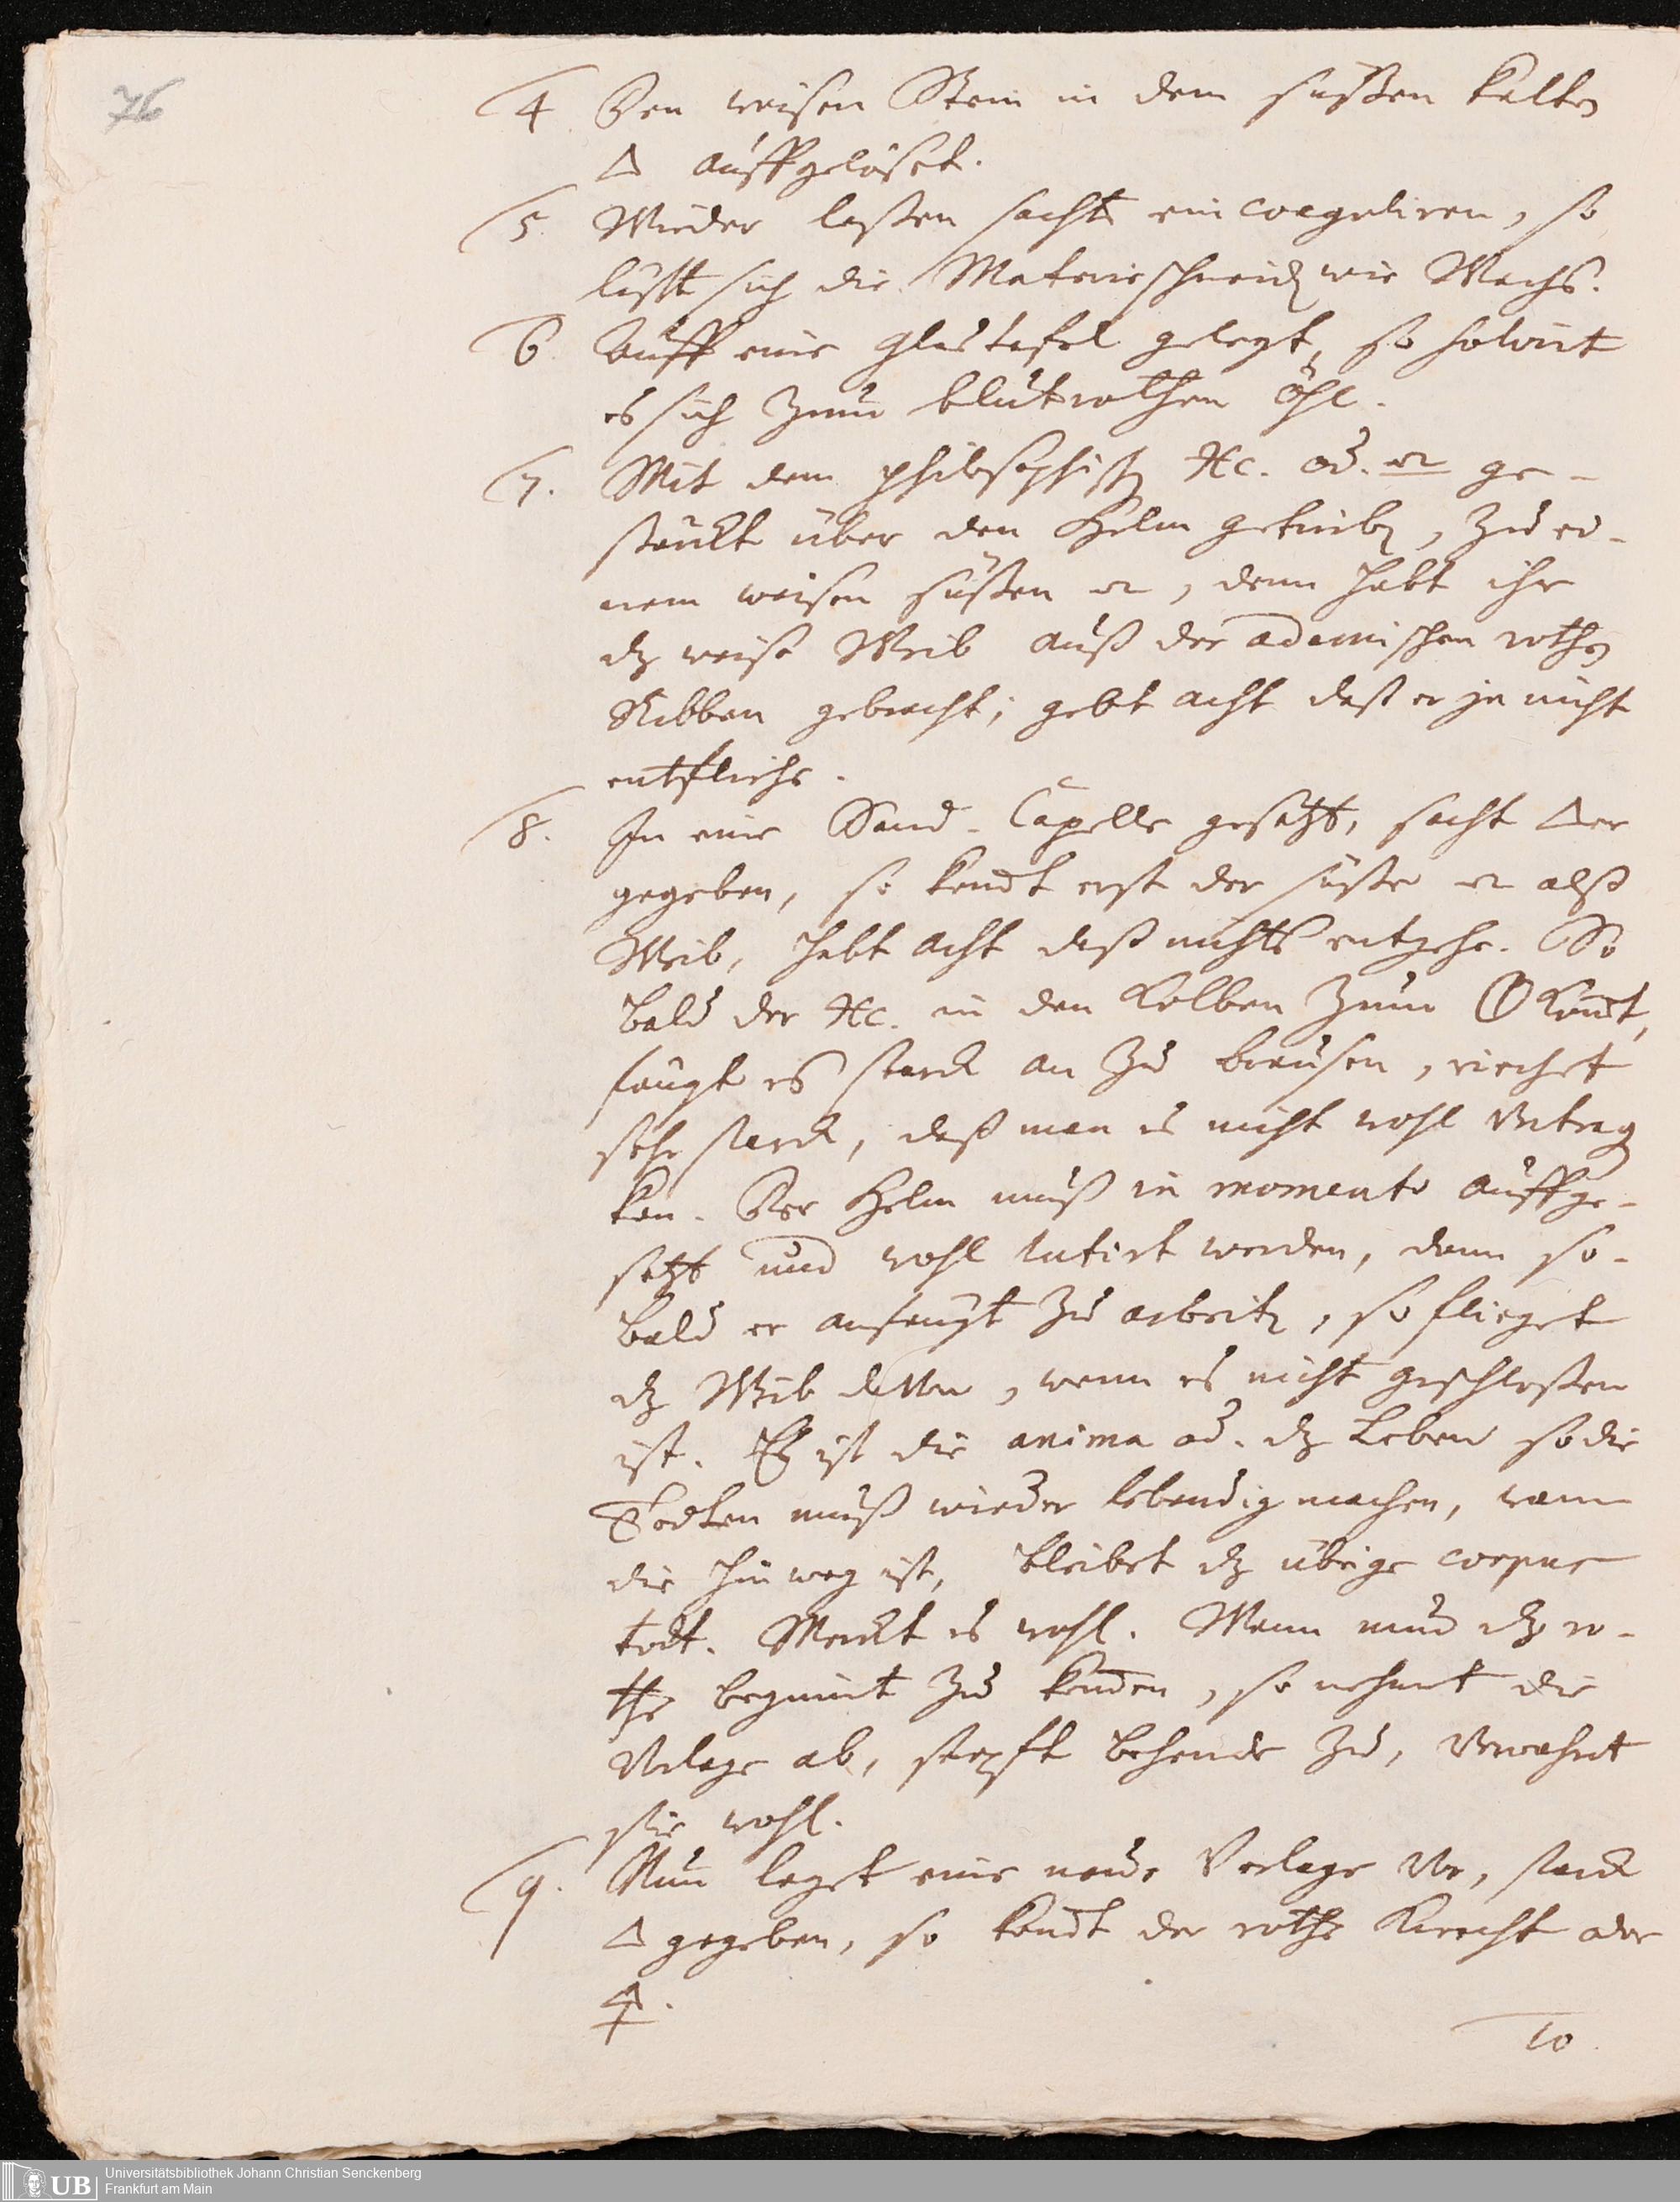 76
4. Den weisen Stein in dem süßen kalten
🜂 auffgelöset.
5. Wieder laßen sacht ein coaguliren, so
läst sich die Materie schneid wie Wachs.
6. Auff eine glastafel gelegt, so solvirt
es sich zum blutrothen öhl.
7. Mit dem philosophisch od. ge-
stärckt über den Helm getrieb, zu ei-
nem weisen süßen, denn habt ihr
dz weise Weib auß der adamischen rothen
Ribben gebracht; gebt acht daß er ja nicht
entfliehe.
8. In eine Sand-Capelle gesetzt, sacht 🜂er
gegeben, so komt erst der süße alß
Weib, habt acht daß nichts entgehe. So
bald der in den Kolben zum komt,
fängt es starck an zu brausen, riechet
sehr starck, daß man es nicht wohl vertrag
kan. Der Helm muß in momento auffge-
setzt und wohl lutirt werden, dann so-
bald er anfängt zu arbeit, so flieget
dz Weib davon, wenn es nicht geschloßen
ist. Es ist die anima od. dz Leben so die
Todten muß wieder lebendig machen, wann
die hinweg ist, bleibet dz übrige corpus
todt. Merckt es wohl. Wenn nun dz ro-
the beginnt zu komen, so nehmt die
Vorlage ab, stopft behende zu, verwahrt
sie wohl.
9. Nun leget eine neue Vorlage vor, starck
🜂 gegeben, so komt der rothe Knecht oder
🜍.
10.
UB Universitätsbibliothek Johann Christian Senckenberg
Frankfurt am Main